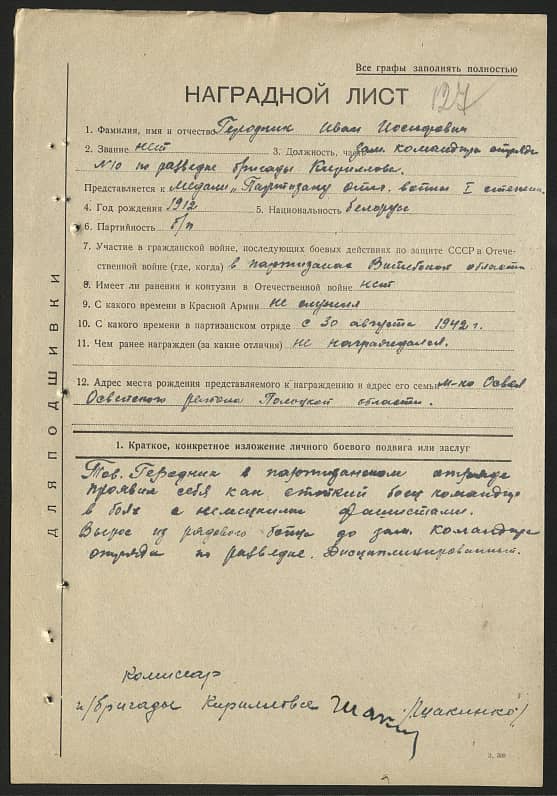 Все графы заполнять полностью
НАГРАДНОЙ ЛИСТ 127
1. Фамилия, имя и отчество Иван Иосифович
2. Звание нет 3. Должность, часть зам. командира отряда
№10 по разведке бригады Кириллова.
Представляется к медали „Партизану отеч. войны I степени.
4. Год рождения 1912 5. Национальность белорус
6. Партийность б/п
7. Участие в гражданской войне, последующих боевых действиях по защите СССР в Отече-
ственной войне (где, когда) в партизанах Витебской области
8. Имеет ли ранения и контузии в Отечественной войне нет
9. С какого времени в Красной Армии не служил
10. С какого времени в партизанском отряде с 30 августа 1942 г.
11. Чем ранее награжден (за какие отличия) не награждался.
12. Адрес места рождения представляемого к награждению и адрес его семьи м-ко Освея
Освейского района Полоцкой области.
1. Краткое, конкретное изложение личного боевого подвига или заслуг
Тов. в партизанском отряде
проявил себя как стойкий боец командир
в боях с немецкими фашистами.
Вырос из рядового бойца до зам. командира
отряда по разведке. Дисциплинированный.
Комиссар
п/бригады Кириллова
ДЛЯ ПОДШИВКИ